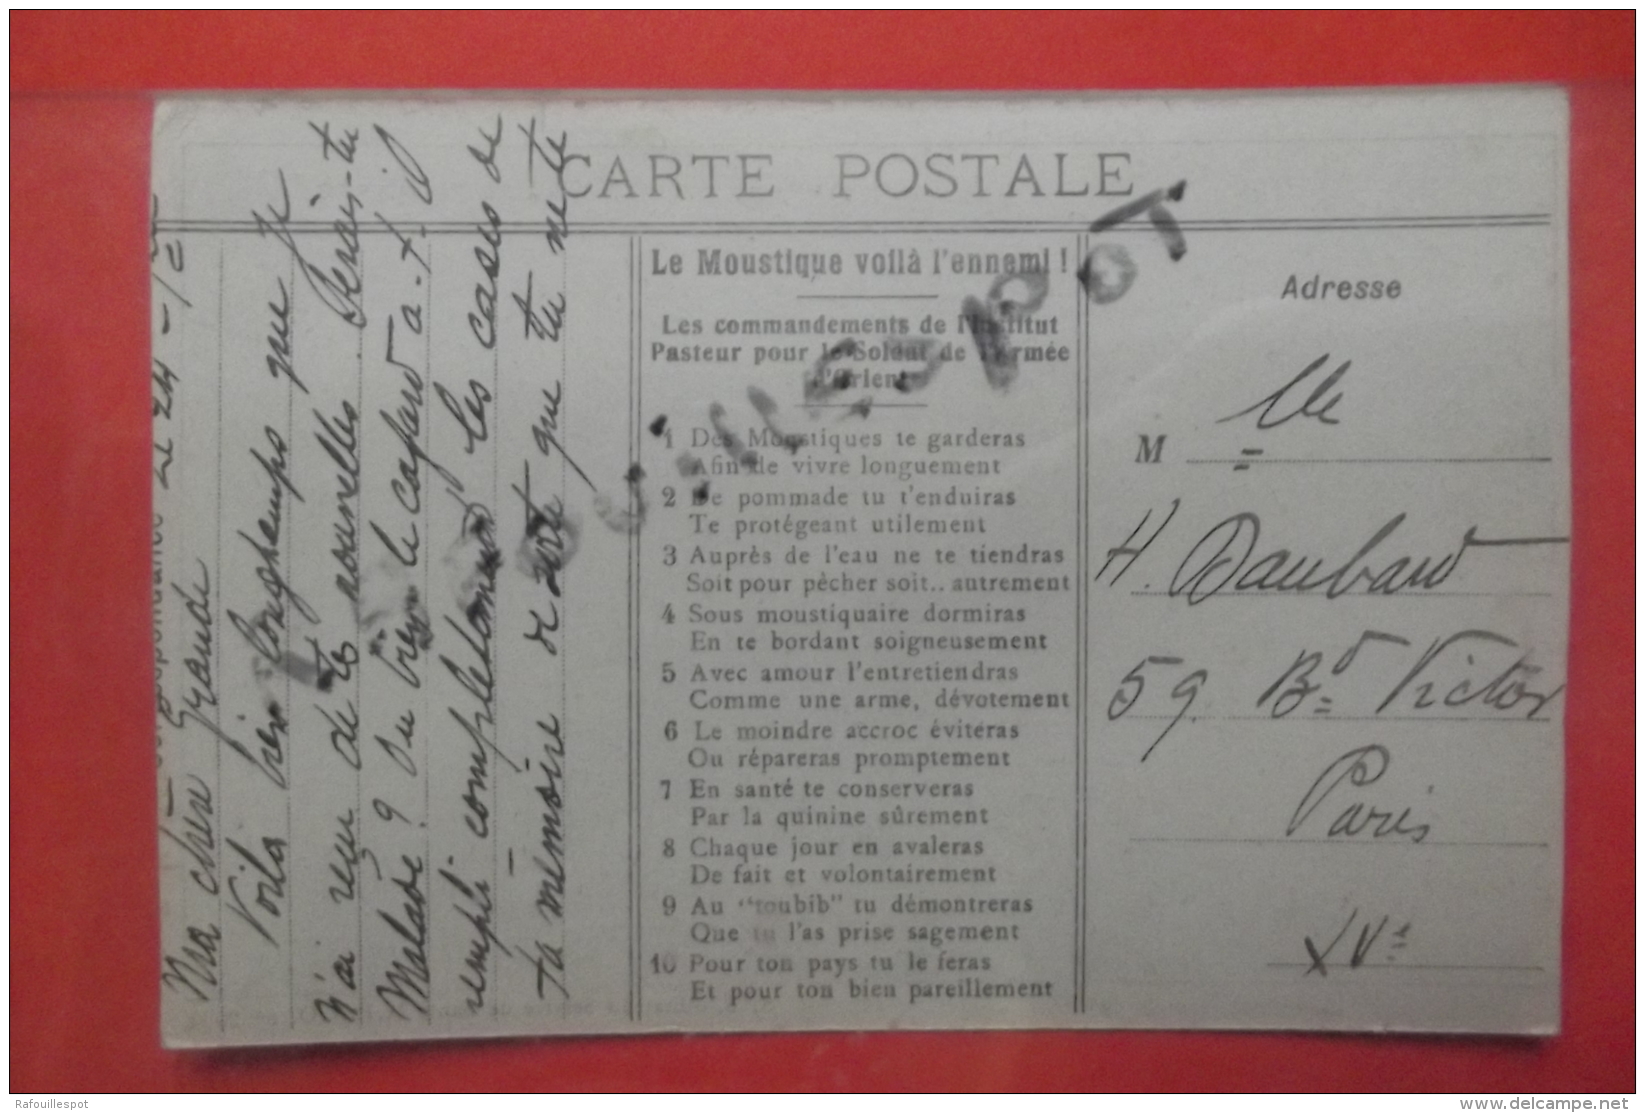 CARTE POSTALE
Correspondance
Le 24 -
Ma chere Grande
Voila bien longtemps que je
n'ai reçu de tes nouvelles. Serais-tu
Malade ? Ou bien le cafard a-t-il
rempli completement les cases de
ta mémoire de sorte que tu ne te
Le Moustique voilà l'ennemi !
Les commandements de l'Institut
Pasteur pour le Soldat de l'Armée
d'Orient
1 Des Moustiques te garderas
Afin de vivre longuement
2 De pommade tu t'enduiras
Te protégeant utilement
3 Auprès de l'eau ne te tiendras
Soit pour pêcher soit.. autrement
4 Sous moustiquaire dormiras
En te bordant soigneusement
5 Avec amour l'entretiendras
Comme une arme, dévotement
6 Le moindre accroc éviteras
Ou répareras promptement
7 En santé te conserveras
Par la quinine sûrement
8 Chaque jour en avaleras
De fait et volontairement
9 Au "toubib" tu démontreras
Que tu l'as prise sagement
10 Pour ton pays tu le feras
Et pour ton bien pareillement
Adresse
M lle
H. Daubard
59. Bd Victor
Paris
XVe
Rafouillespot
Rafouillespot
www.delcampe.net